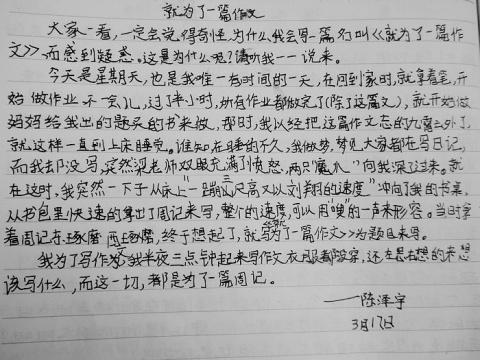 就为了一篇作文
大家一看,一定会说,得奇怪,为什么我会写一篇名叫《就为了一篇作
文》而感到疑惑。这是为什么呢?请听我一一说来。
今天是星期天,也是我唯一有时间的一天,在回到家时,就拿着笔,开
始做作业不一会儿,过了半小时,所有作业都做完了(除了这篇文),就开始做
妈妈给我出的题买的书来做,那时,我以经把这篇作文忘的九霄云外了,
就这样一直到上床睡觉。谁知在睡的不久,我做梦,梦见大家都在写日记,
而我却没写,突然梁老师双眼充满了愤怒,两只"魔爪"向我深了过来。就
在这时,我突然一下子从床上"一蹦三尺高又以刘翔的速度"冲向了我的书桌,
从书包里快速的拿出了周记来写,整个的速度,可以用"嗖"的一声来形容。当时拿
着周记本琢磨再琢磨,终于想起了,就写《为了一篇作文》为题目来写。
我为了写作为文我半夜三点钟起来写作文衣服都没穿,还在想在想的老想
该写什么,而这一切,都是为了一篇周记。
——陈泽宇
3月17日